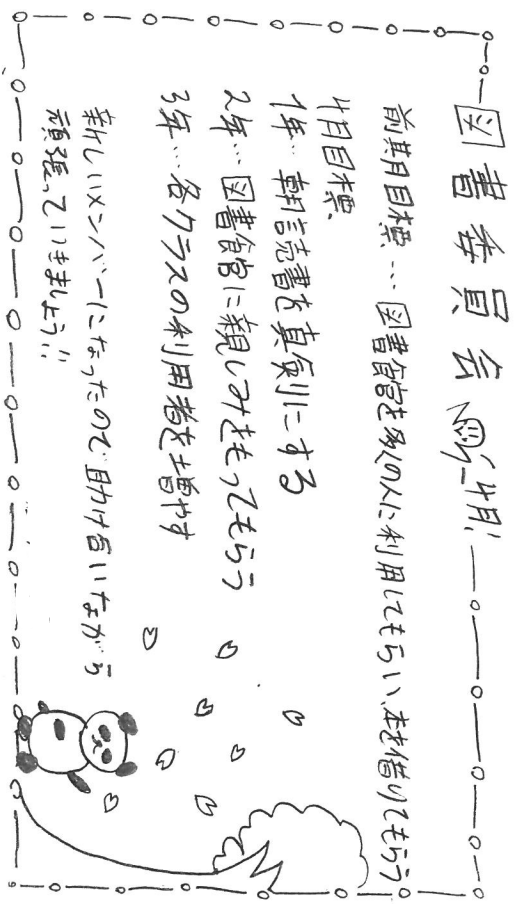 図書委員会 4月!
前期目標… 図書館を多くの人に利用してもらい、本を借りてもらう
4月目標
1年… 朝読書を真剣にする
2年… 図書館に親しみをもってもらう
3年… 各クラスの利用者を増やす
新しいメンバーになったので助け合いながら
頑張っていきましょう!!